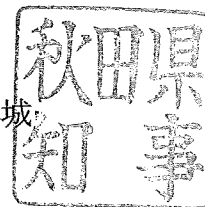 秋田県
知事
城